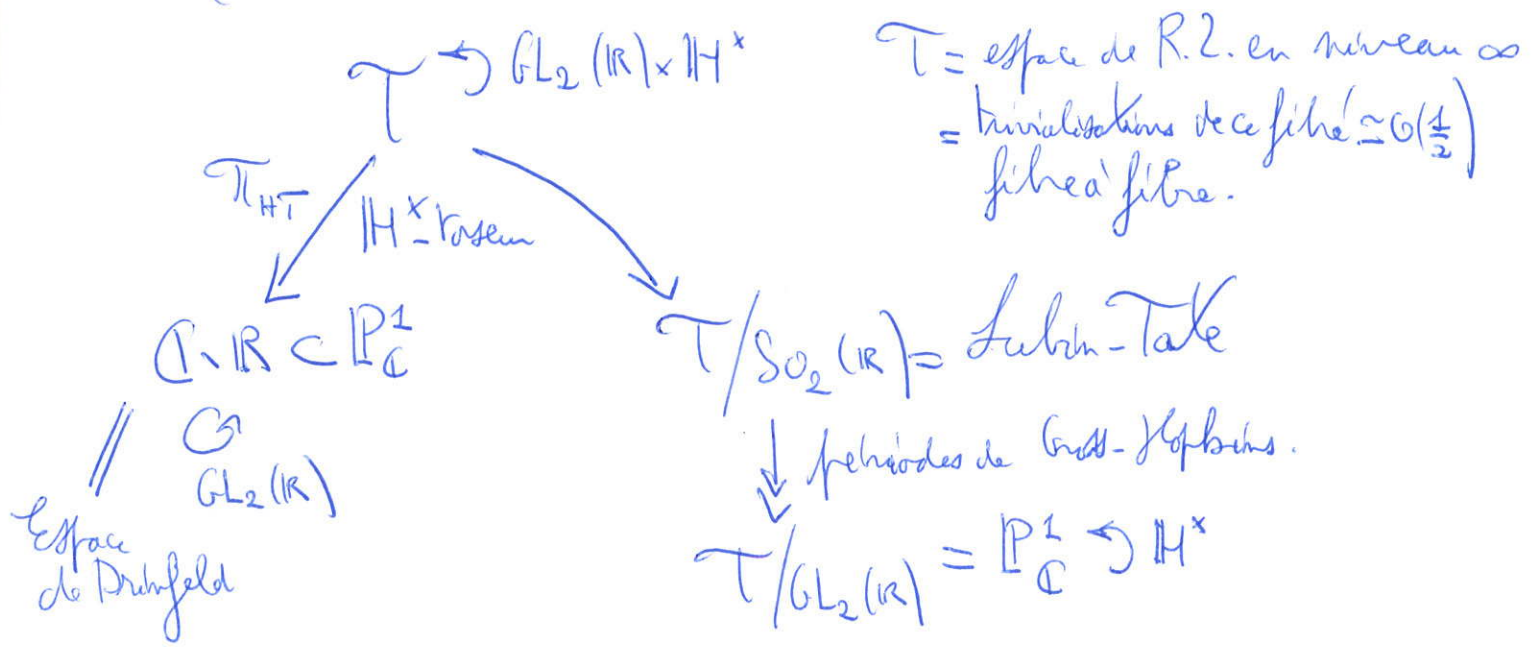 𝒯 ↶ GL₂(ℝ) × ℍˣ
𝒯 = espace de R.Z. en niveau ∞
= trivialisations de ce fibré ≃ O(1/2)
fibre à fibre.
π_HT
ℍˣ-torseur
ℂ∖ℝ ⊂ ℙ¹_ℂ
GL₂(ℝ)
Espace
de Drinfeld
𝒯/SO₂(ℝ) = Lubin-Tate
périodes de Gross-Hopkins.
𝒯/GL₂(ℝ) = ℙ¹_ℂ ↶ ℍˣ